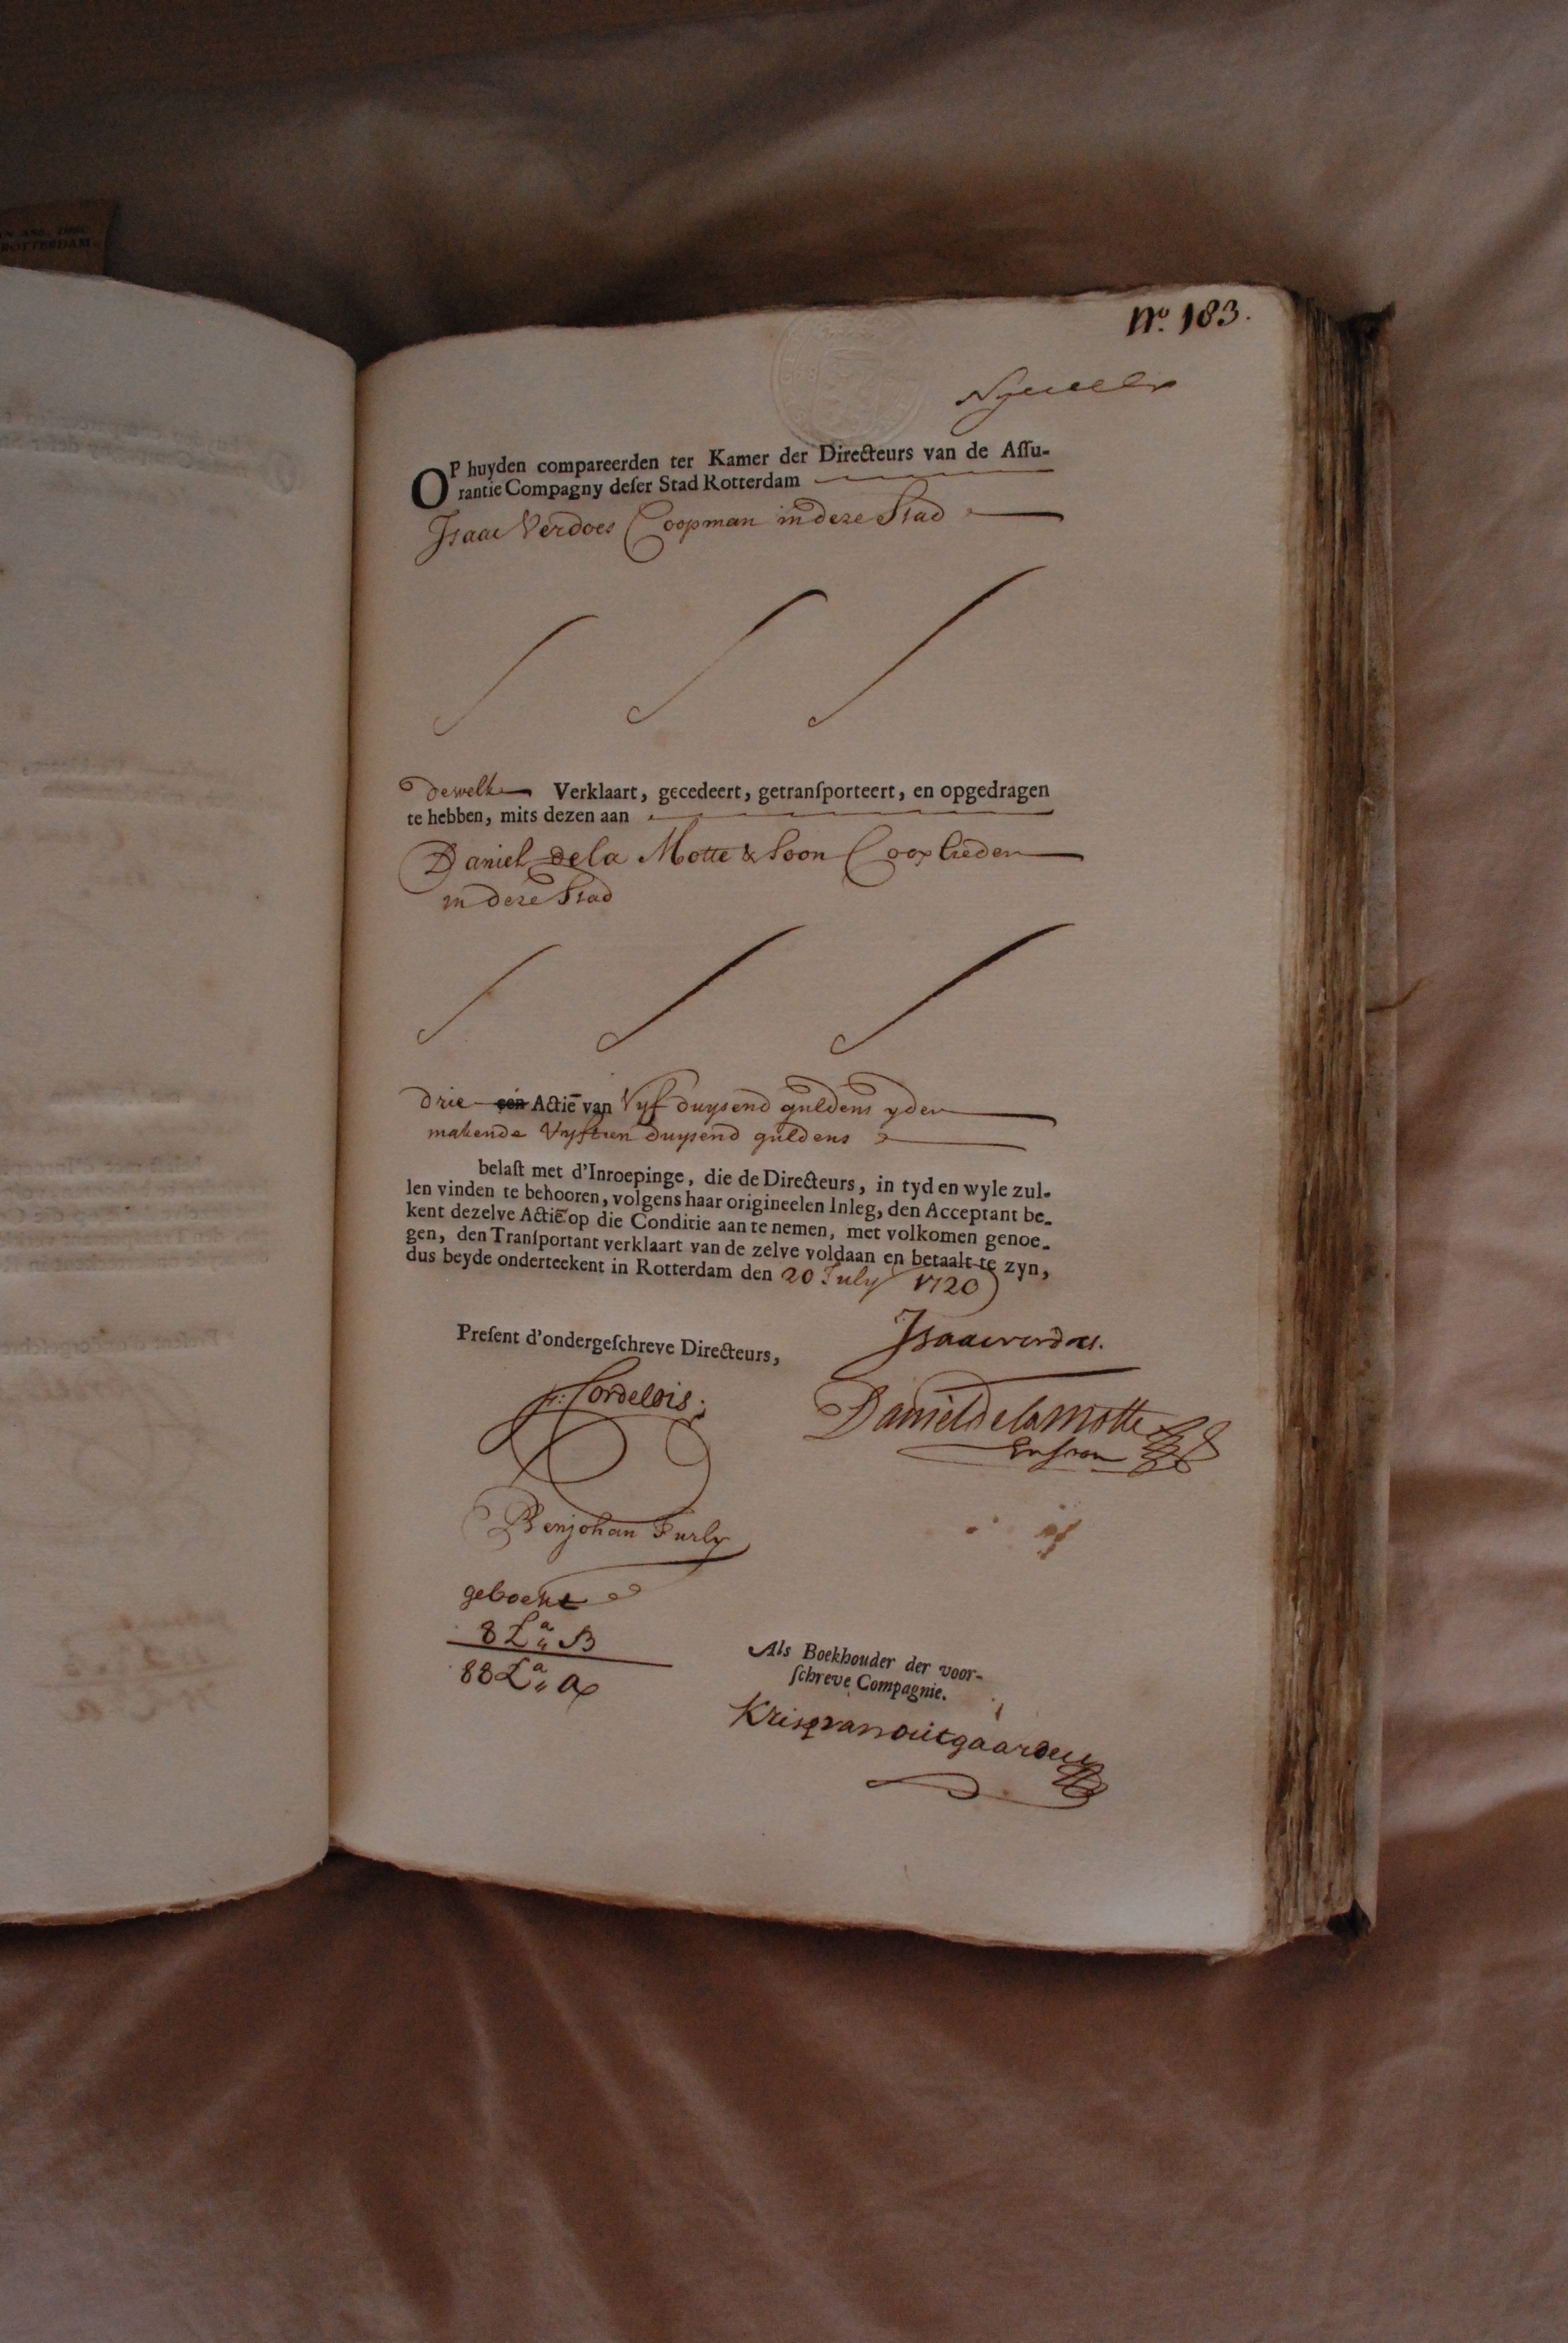 ROTTERDAM
No. 183.
OP huyden compareerden ter Kamer der Directeurs van de Aſſu-
rantie Compagny deſer Stad Rotterdam
Isaac Verdoes Coopman in deze Stad
dewelke Verklaart, gecedeert, getranſporteert, en opgedragen
te hebben, mits dezen aan
Daniel de la Motte & Soon Cooplieden
in deze Stad
drie een Actiē van Vyf duysend guldens yder
makende Vyftien duysend guldens
belaſt met d'Inroepinge, die de Directeurs, in tyd en wyle zul-
len vinden te behooren, volgens haar origineelen Inleg, den Acceptant be-
kent dezelve Actiē op die Conditie aan te nemen, met volkomen genoe-
gen, den Tranſportant verklaart van de zelve voldaan en betaalt te zyn,
dus beyde onderteekent in Rotterdam den 20 July 1720
Preſent d'ondergeſchreve Directeurs,
Isaac verdoes.
F: Cordelois;
Daniel de la Motte
En soon
Benjohan Furly
geboekt
8 La B
88 La a
Als Boekhouder der voor-
ſchreve Compagnie.
Kris van outgaarden